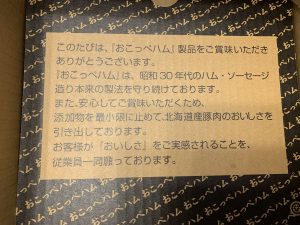 おこっぺハム おこっぺハム おこっぺハム
このたびは、「おこっぺハム」製品をご賞味いただき
ありがとうございます。
「おこっぺハム」は、昭和30年代のハム・ソーセージ
造り本来の製法を守り続けております。
また、安心してご賞味いただくため、
添加物を最小限に止めて、北海道産豚肉のおいしさを
引き出しております。
お客様が「おいしさ」をご実感されることを、
従業員一同願っております。
おこっぺハム おこっぺハム おこっぺハム